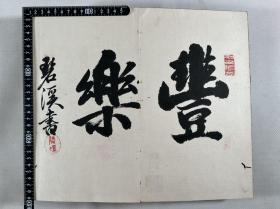 豐
樂
碧溪書